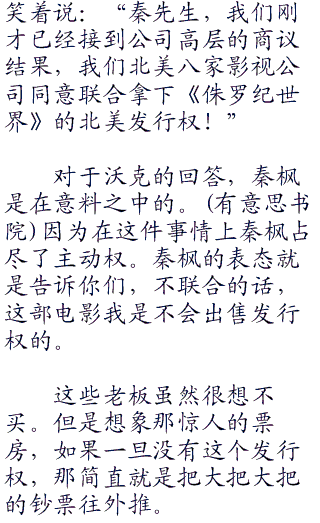 笑着说：“秦先生，我们刚
才已经接到公司高层的商议
结果，我们北美八家影视公
司同意联合拿下《侏罗纪世
界》的北美发行权！”
对于沃克的回答，秦枫
是在意料之中的。(有意思书
院)因为在这件事情上秦枫占
尽了主动权。秦枫的表态就
是告诉你们，不联合的话，
这部电影我是不会出售发行
权的。
这些老板虽然很想不
买。但是想象那惊人的票
房，如果一旦没有这个发行
权，那简直就是把大把大把
的钞票往外推。